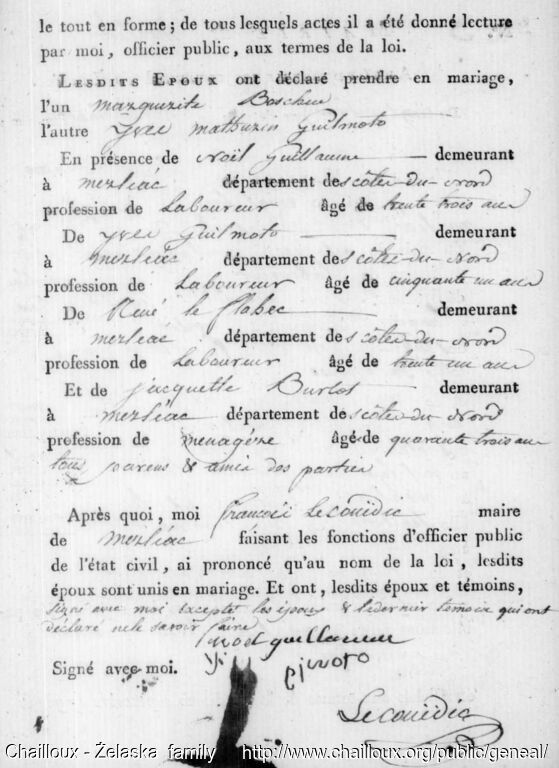 le tout en forme ; de tous lesquels actes il a été donné lecture
par moi, officier public, aux termes de la loi.
LESDITS EPOUX ont déclaré prendre en mariage,
l'un marguerite Boscher
l'autre yves mathurin Guilmoto
En présence de Noël Guillaume demeurant
à merléac département des côtes du Nord
profession de Laboureur âgé de trente trois ans
De yves Guilmoto demeurant
à merléac département des côtes du Nord
profession de Laboureur âgé de cinquante un ans
De René le flahec demeurant
à merléac département des côtes du Nord
profession de Laboureur âgé de trente un ans
Et de jacquette Burlot demeurant
à merléac département des côtes du Nord
profession de menagère âgé de quarante trois ans
tous parens & amis des parties
Après quoi, moi françois Le couëdic maire
de merléac faisant les fonctions d'officier public
de l'état civil, ai prononcé qu'au nom de la loi, lesdits
époux sont unis en mariage. Et ont, lesdits époux et témoins,
signé avec moi excepté les époux & le dernier temoin qui ont
déclaré ne le savoir faire
noel guillaume
Signé avec moi.
Le couëdic
Chailloux - Żelaska family http://www.chailloux.org/public/geneal/